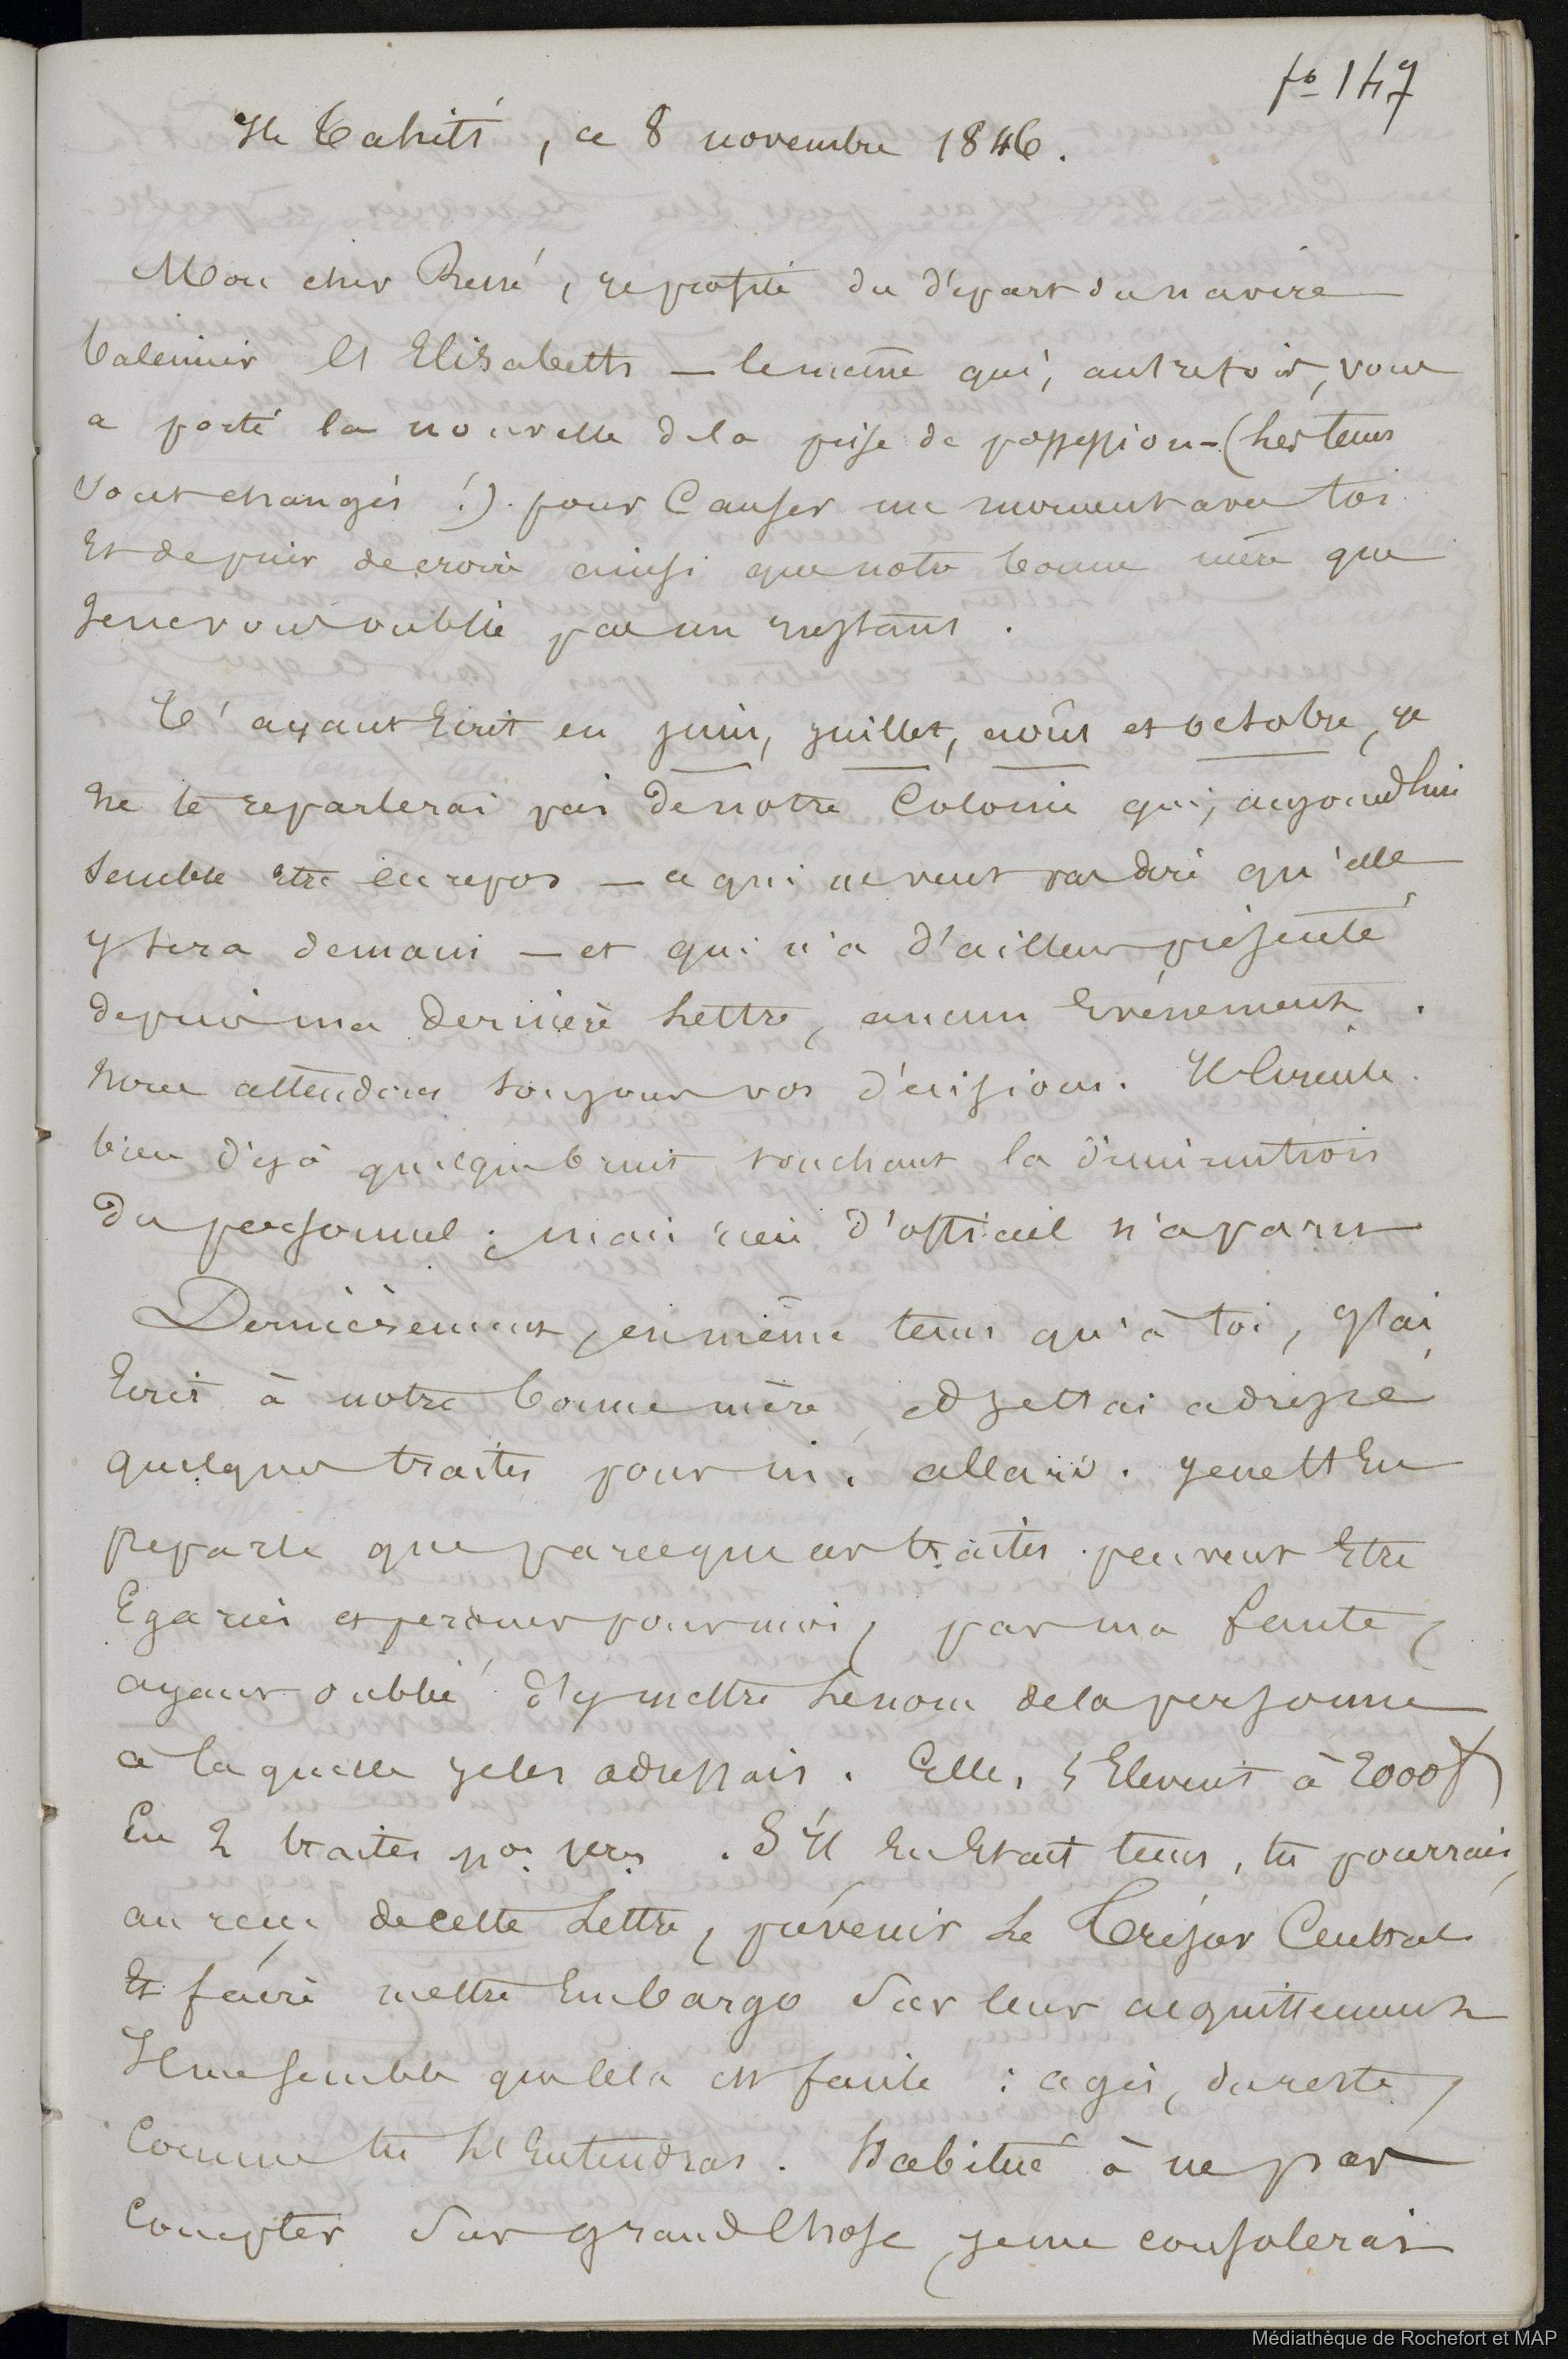 fo 147
Ile Tahiti, ce 8 novembre 1846.
Mon cher René, je profite du départ du navire
baleinier l'Elisabeth — le même qui, autrefois, vous
a porté la nouvelle de la prise de possession — (les tems
sont changés !). pour causer un moment avec toi
Et depuis de croire ainsi que notre bonne mère que
je ne vous oublie pas un instant.
T'ayant Ecrit en juin, juillet, août et octobre, je
ne te reparlerai pas de notre Colonie qui, aujourd'hui
semble Etre en repos — ce qui ne veut pas dire qu'elle
y sera demain — et qui n'a d'ailleurs présenté
depuis ma dernière Lettre, aucun Evénement.
Nous attendons toujours vos décisions. Il circule
bien déjà quelque bruit touchant la diminution
du personnel ; mais rien d'officiel n'a paru
Dernièrement, en même tems qu'à toi, J'ai
Ecrit à notre bonne mère, et je t'ai adressé
quelques traites pour m. allari. je ne t'En
reparle que parceque ces traites peuvent Etre
Egarées et perdues pour moi, par ma faute,
ayant oublié d'y mettre Le nom de la personne
à laquelle je les adressais. Elles s'Elevent à 2000 f
En 2 traites . S'Il En Etait tems, tu pourrais,
au reçu de cette Lettre, prévenir Le Trésor Central
Et faire mettre Embargo Sur leur acquittement
Il me semble que cela est facile : agis, du reste,
Comme tu L'Entendras. Habitué à ne pas
Compter Sur grand Chose, je me consolerai
Médiathèque de Rochefort et MAP